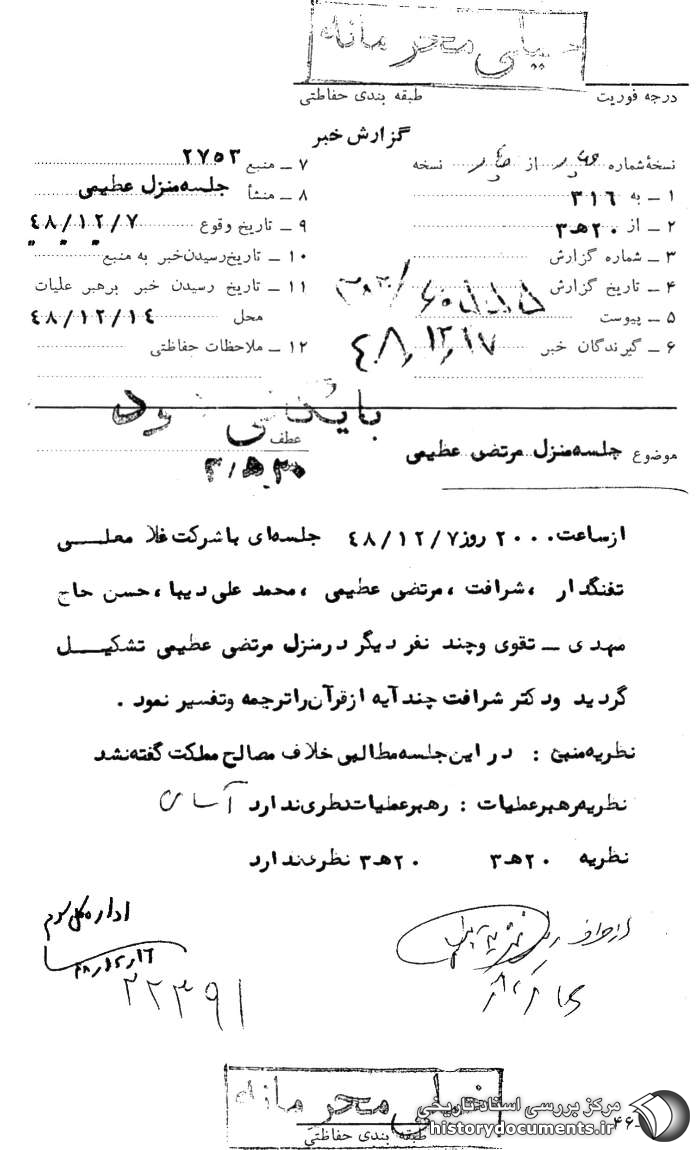 خیلی محرمانه
درجه فوریت
طبقه بندی حفاظتی
گزارش خبر
نسخهٔ شماره از نسخه
۱ ــ به ۳۱۶
۲ ــ از ۲۰هـ۳
۳ ــ شماره گزارش
۴ ــ تاریخ گزارش
۵ ــ پیوست
۶ ــ گیرندگان خبر
۴۸/۱۲/۱۷
۷ ــ منبع ۲۷۵۳
۸ ــ منشأ جلسه منزل عظیمی
۹ ــ تاریخ وقوع ۴۸/۱۲/۷
۱۰ ــ تاریخ رسیدن خبر به منبع
۱۱ ــ تاریخ رسیدن خبر برهبر علیات
محل ۴۸/۱۲/۱۴
۱۲ ــ ملاحظات حفاظتی
بایگانی شود
عطف
موضوع جلسه منزل مرتضی عظیمی
ازساعت ۲۰۰۰ روز ۴۸/۱۲/۷ جلسه‌ای با شرکت فلا معلـــی
تفنگدار ، شرافت ، مرتضی عظیمی ، محمد علی دیبا ، حسن حاج
مهدی ــ تقوی و چند نفر دیگر در منزل مرتضی عظیمی تشکیـــل
گردید و دکتر شرافت چند آیه از قرآن را ترجمه و تفسیر نمود .
نظریه منبع : در این جلسه مطالبی خلاف مصالح مملکت گفته نشد
نظریه رهبر عملیات : رهبر عملیات نظری ندارد
نظریه ۲۰هـ۳ ۲۰هـ۳ نظری ندارد
اداره کل سوم
۴۸/۱۲/۱۶
۲۲۳۹۱
خیلی محرمانه
طبقه بندی حفاظتی
مرکز بررسی اسناد تاریخی
historydocuments.ir